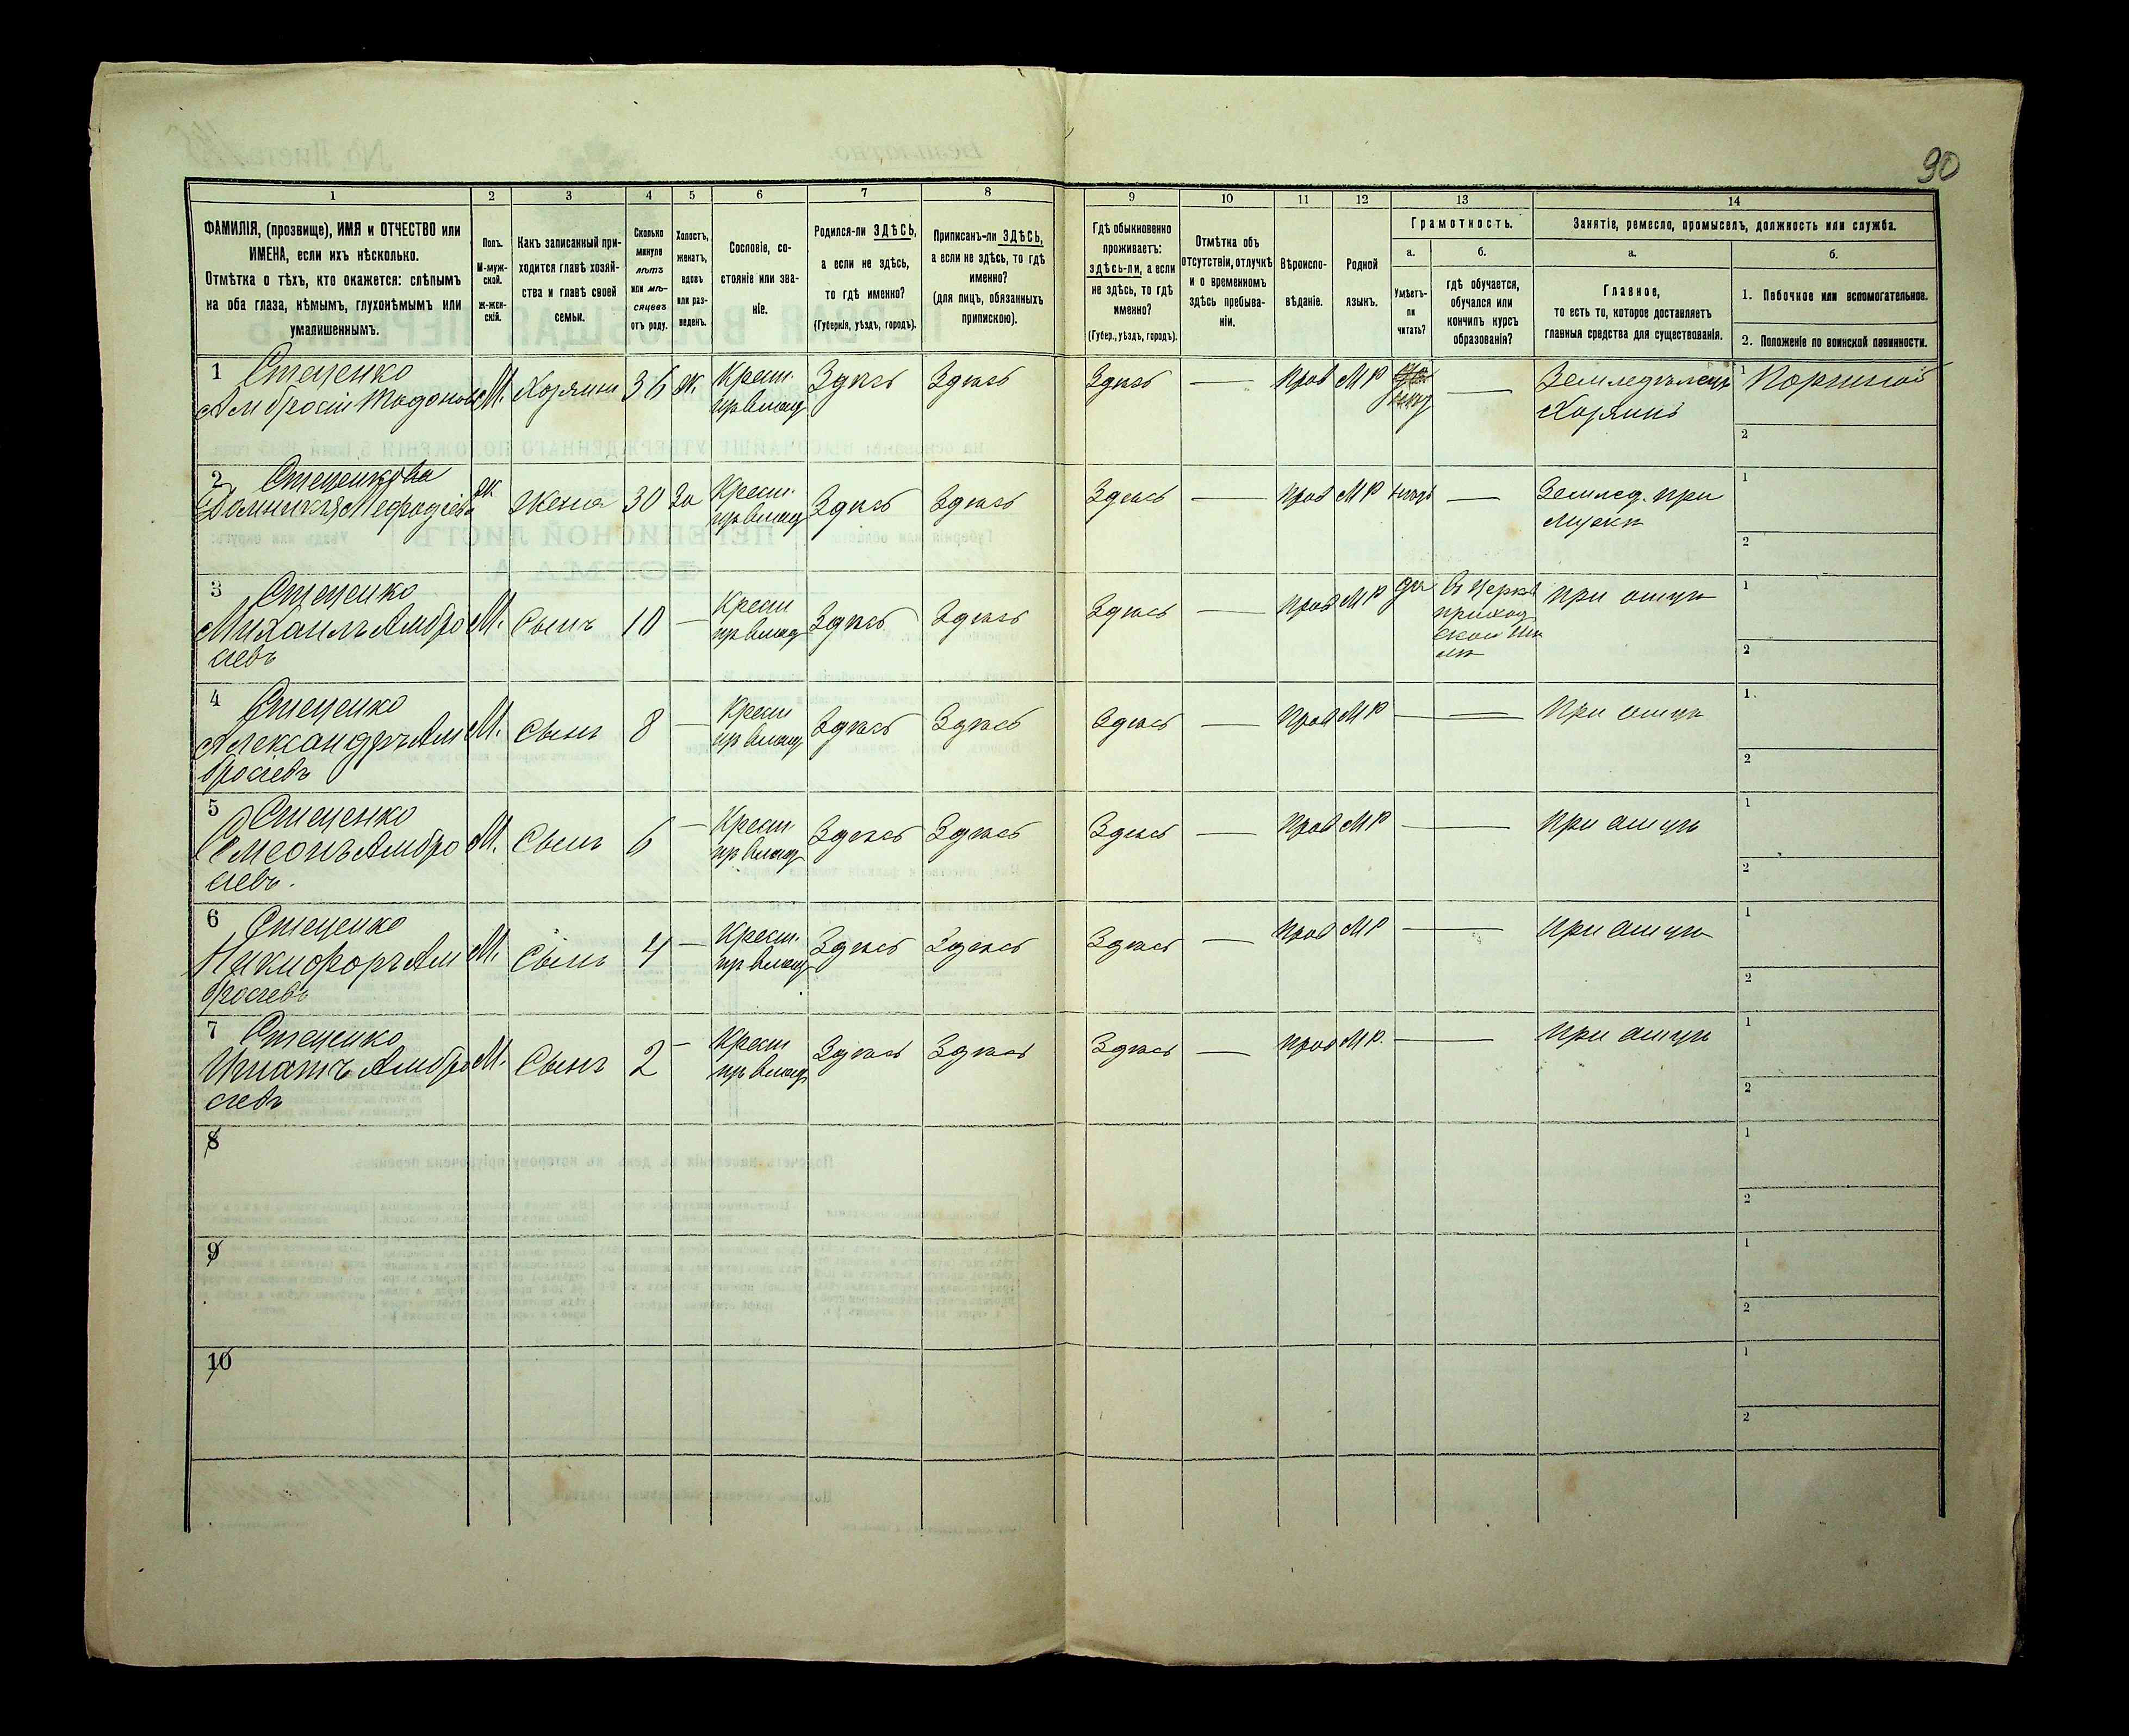 90
1 2 3 4 5 6 7 8 9 10 11 12 13 14
ФАМИЛІЯ, (прозвище), ИМЯ и ОТЧЕСТВО или
ИМЕНА, если ихъ нѣсколько.
Отмѣтка о тѣхъ, кто окажется: слѣпымъ
на оба глаза, нѣмымъ, глухонѣмымъ или
умалишеннымъ.
Полъ.
М-муж-
ской.
Ж-жен-
скій.
Какъ записанный при-
ходится главѣ хозяй-
ства и главѣ своей
семьи.
Сколько
минуло
лѣтъ
или мѣ-
сяцевъ
отъ роду.
Холостъ,
женатъ,
вдовъ
или раз-
веденъ.
Сословіе, со-
стояніе или зва-
ніе.
Родился-ли ЗДѢСЬ,
а если не здѣсь,
то гдѣ именно?
(Губернія, уѣздъ, городъ).
Приписанъ-ли ЗДѢСЬ,
а если не здѣсь, то гдѣ
именно?
(для лицъ, обязанныхъ
припискою).
Гдѣ обыкновенно
проживаетъ:
здѣсь-ли, а если
не здѣсь, то гдѣ
именно?
(Губер., уѣздъ, городъ).
Отмѣтка объ
отсутствіи, отлучкѣ
и о временномъ
здѣсь пребыва-
ніи.
Вѣроиспо-
вѣданіе.
Родной
языкъ.
Грамотность.
а.
Умѣетъ-
ли
читать?
б.
гдѣ обучается,
обучался или
кончилъ курсъ
образованія?
Занятіе, ремесло, промыселъ, должность или служба.
а.
Главное,
то есть то, которое доставляетъ
главныя средства для существованія.
б.
1. Побочное или вспомогательное.
2. Положеніе по воинской повинности.
1 Стеценко
Амбросій М. Хозяинъ 36 ж. Крест. Здѣсь Здѣсь Здѣсь — прав МР — Земледѣлецъ 1
пр владѣ Хозяинъ
2
2 Стеценкова
Домникія Мефодіева ж Жена 30 За Крест. Здѣсь Здѣсь Здѣсь — прав МР нѣтъ — Землед. при 1
пр владѣ мужѣ
2
3 Стеценко
Михаилъ Амбро М. Сынъ 10 — Крест Здѣсь Здѣсь Здѣсь — прав МР да въ церк при отцѣ 1
сіевъ пр владѣ приход
ской шко
лѣ
2
4 Стеценко
Александръ Ам М. Сынъ 8 — Крест Здѣсь Здѣсь Здѣсь — прав МР — — При отцѣ 1
бросіевъ пр владѣ
2
5 Стеценко
Симеонъ Амбро М. Сынъ 6 — Крест. Здѣсь Здѣсь Здѣсь — прав МР — при отцѣ 1
сіевъ. пр владѣ
2
6 Стеценко
Никифоръ Ам М. Сынъ 4 — Крест. Здѣсь Здѣсь Здѣсь — прав МР — при отцѣ 1
бросіевъ пр владѣ
2
7 Стеценко
Игнатъ Амбро М. Сынъ 2 — Крест Здѣсь Здѣсь Здѣсь — прав МР. — при отцѣ 1
сіевъ пр владѣ
2
8 1
2
9 1
2
10 1
2